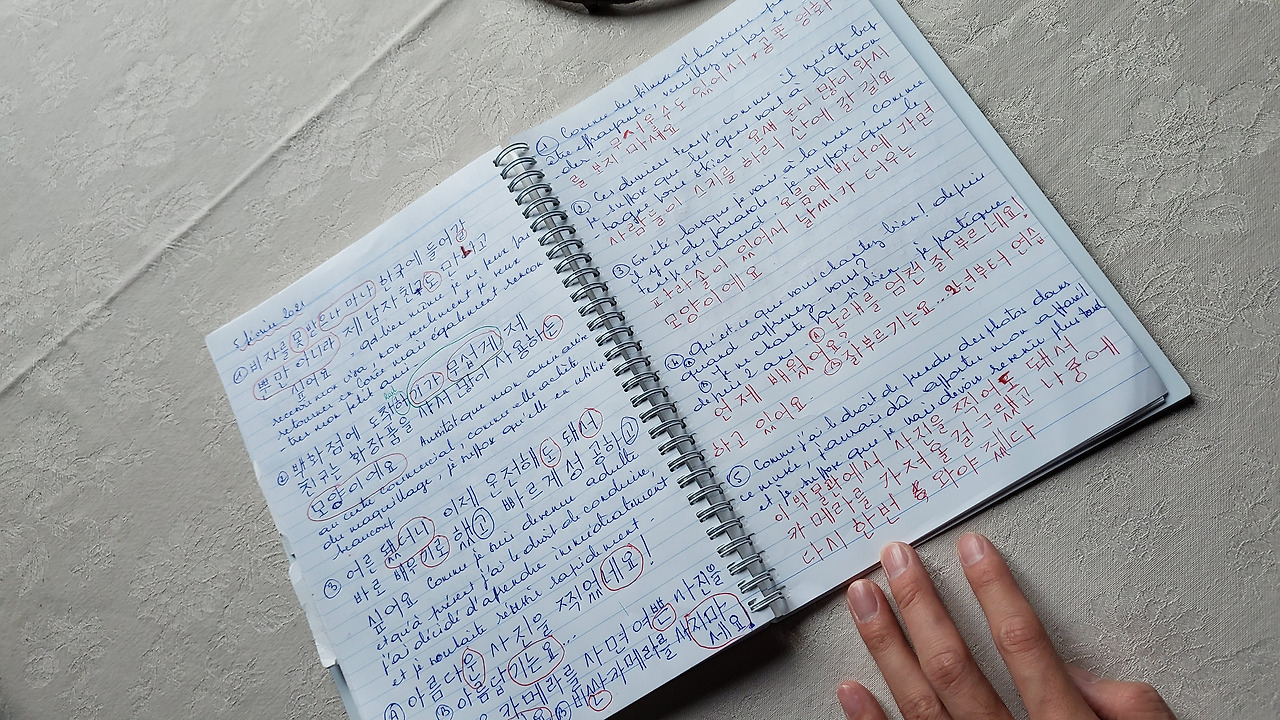 5 février 2021
① 비자를 못 받은 나머나 한국에 들어갈
뿐만 아니라 제 남자친구도 만나고
싶어요
recevoir mon visa, non seulement je ne peux pas
retourner en Corée mais également je veux
② 백화점에 도착 하기가 무섭게 제
친구는 화장품을 사서 많이 사용하는
모양이에요 Aussitôt que mon amie arrive
au centre commercial, comme elle achète
du maquillage, je suppose qu'elle en utilise
beaucoup
③ 어른 됐더니 이제 운전해도 돼서
바로 배우기로 했고 빠르게 성공하고
싶어요 Comme je suis devenue adulte
et qu'à présent j'ai le droit de conduire,
j'ai décidé d'apprendre immédiatement
et je voudrais réussir rapidement.
Ⓐ 아름다운 사진을 찍었네요!
Ⓑ 아름답기는요...
카메라를 사면 예쁜 사진을
비싼 카메라를 사지마
세요!
① Comme les films d'horreur
être effrayants, veuillez ne pas en
무서울수도 있어서 공포 영화
를 보지 마세요
② Ces derniers temps, comme il neige bcp
je suppose que les gens vont à la
pour skier 요새 눈이 많이 와서
사람들이 스키를 하러 산에 간 걸요
③ En été lorsque je vais à la mer, comme
il y a du parasol, je suppose que le
temps est chaud 여름에 바다에 가면
파라솔이 있어서 날씨가 더우는
모양이에요
④ Qu'est-ce que vous chantez bien! depuis
quand apprenez-vous?
Ⓑ je ne chante pas si bien, je pratique
depuis 2 ans Ⓐ 노래를 엄전 잘 부르네요!
언제 배웠어요? Ⓑ 잘 부르기는요... 2년부터 연습
하고 있어요.
⑤ Comme j'ai le droit de prendre des photos dans
ce musée, j'aurais dû apporter mon appareil
et je suppose que je vais devoir revenir plus tard
이 박물관에서 사진을 찍어도 돼서
카메라를 가져올 걸 그랬고 나중에
다시 한번 와야 겠다